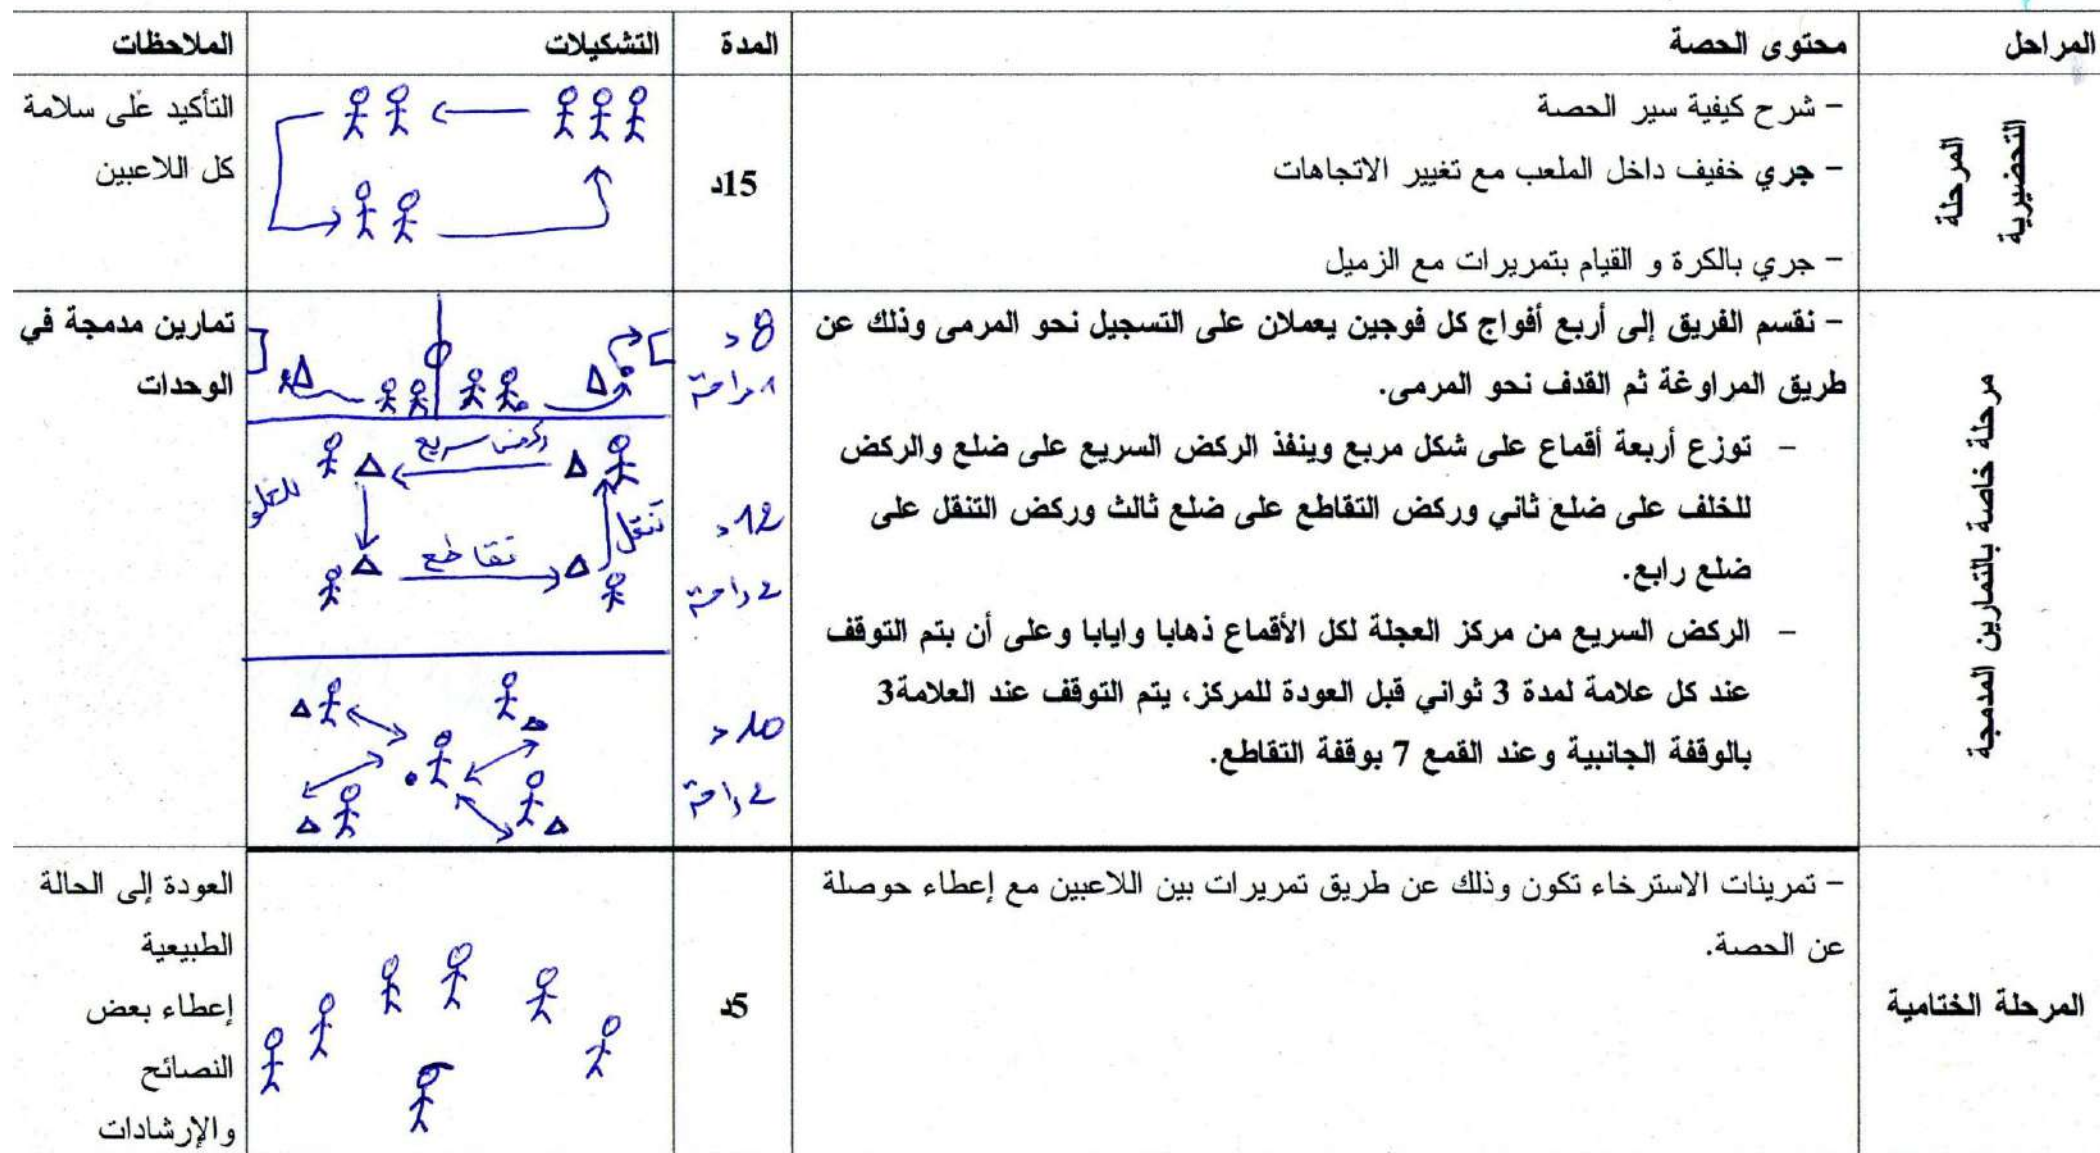 المراحل	محتوى الحصة	المدة	التشكيلات	الملاحظات
المرحلة
التحضيرية
– شرح كيفية سير الحصة
– جري خفيف داخل الملعب مع تغيير الاتجاهات
– جري بالكرة و القيام بتمريرات مع الزميل
15د
التأكيد على سلامة
كل اللاعبين
مرحلة خاصة بالتمارين المدمجة
– نقسم الفريق إلى أربع أفواج كل فوجين يعملان على التسجيل نحو المرمى وذلك عن
طريق المراوغة ثم القدف نحو المرمى.
– توزع أربعة أقماع على شكل مربع وينفذ الركض السريع على ضلع والركض
للخلف على ضلع ثاني وركض التقاطع على ضلع ثالث وركض التنقل على
ضلع رابع.
– الركض السريع من مركز العجلة لكل الأقماع ذهابا وايابا وعلى أن بتم التوقف
عند كل علامة لمدة 3 ثواني قبل العودة للمركز، يتم التوقف عند العلامة3
بالوقفة الجانبية وعند القمع 7 بوقفة التقاطع.
8د
1د راحة
12د
2د راحة
10د
2د راحة
ركض سريع
للخلف
تقاطع
تنقل
تمارين مدمجة في
الوحدات
المرحلة الختامية
– تمرينات الاسترخاء تكون وذلك عن طريق تمريرات بين اللاعبين مع إعطاء حوصلة
عن الحصة.
5د
العودة إلى الحالة
الطبيعية
إعطاء بعض
النصائح
والإرشادات